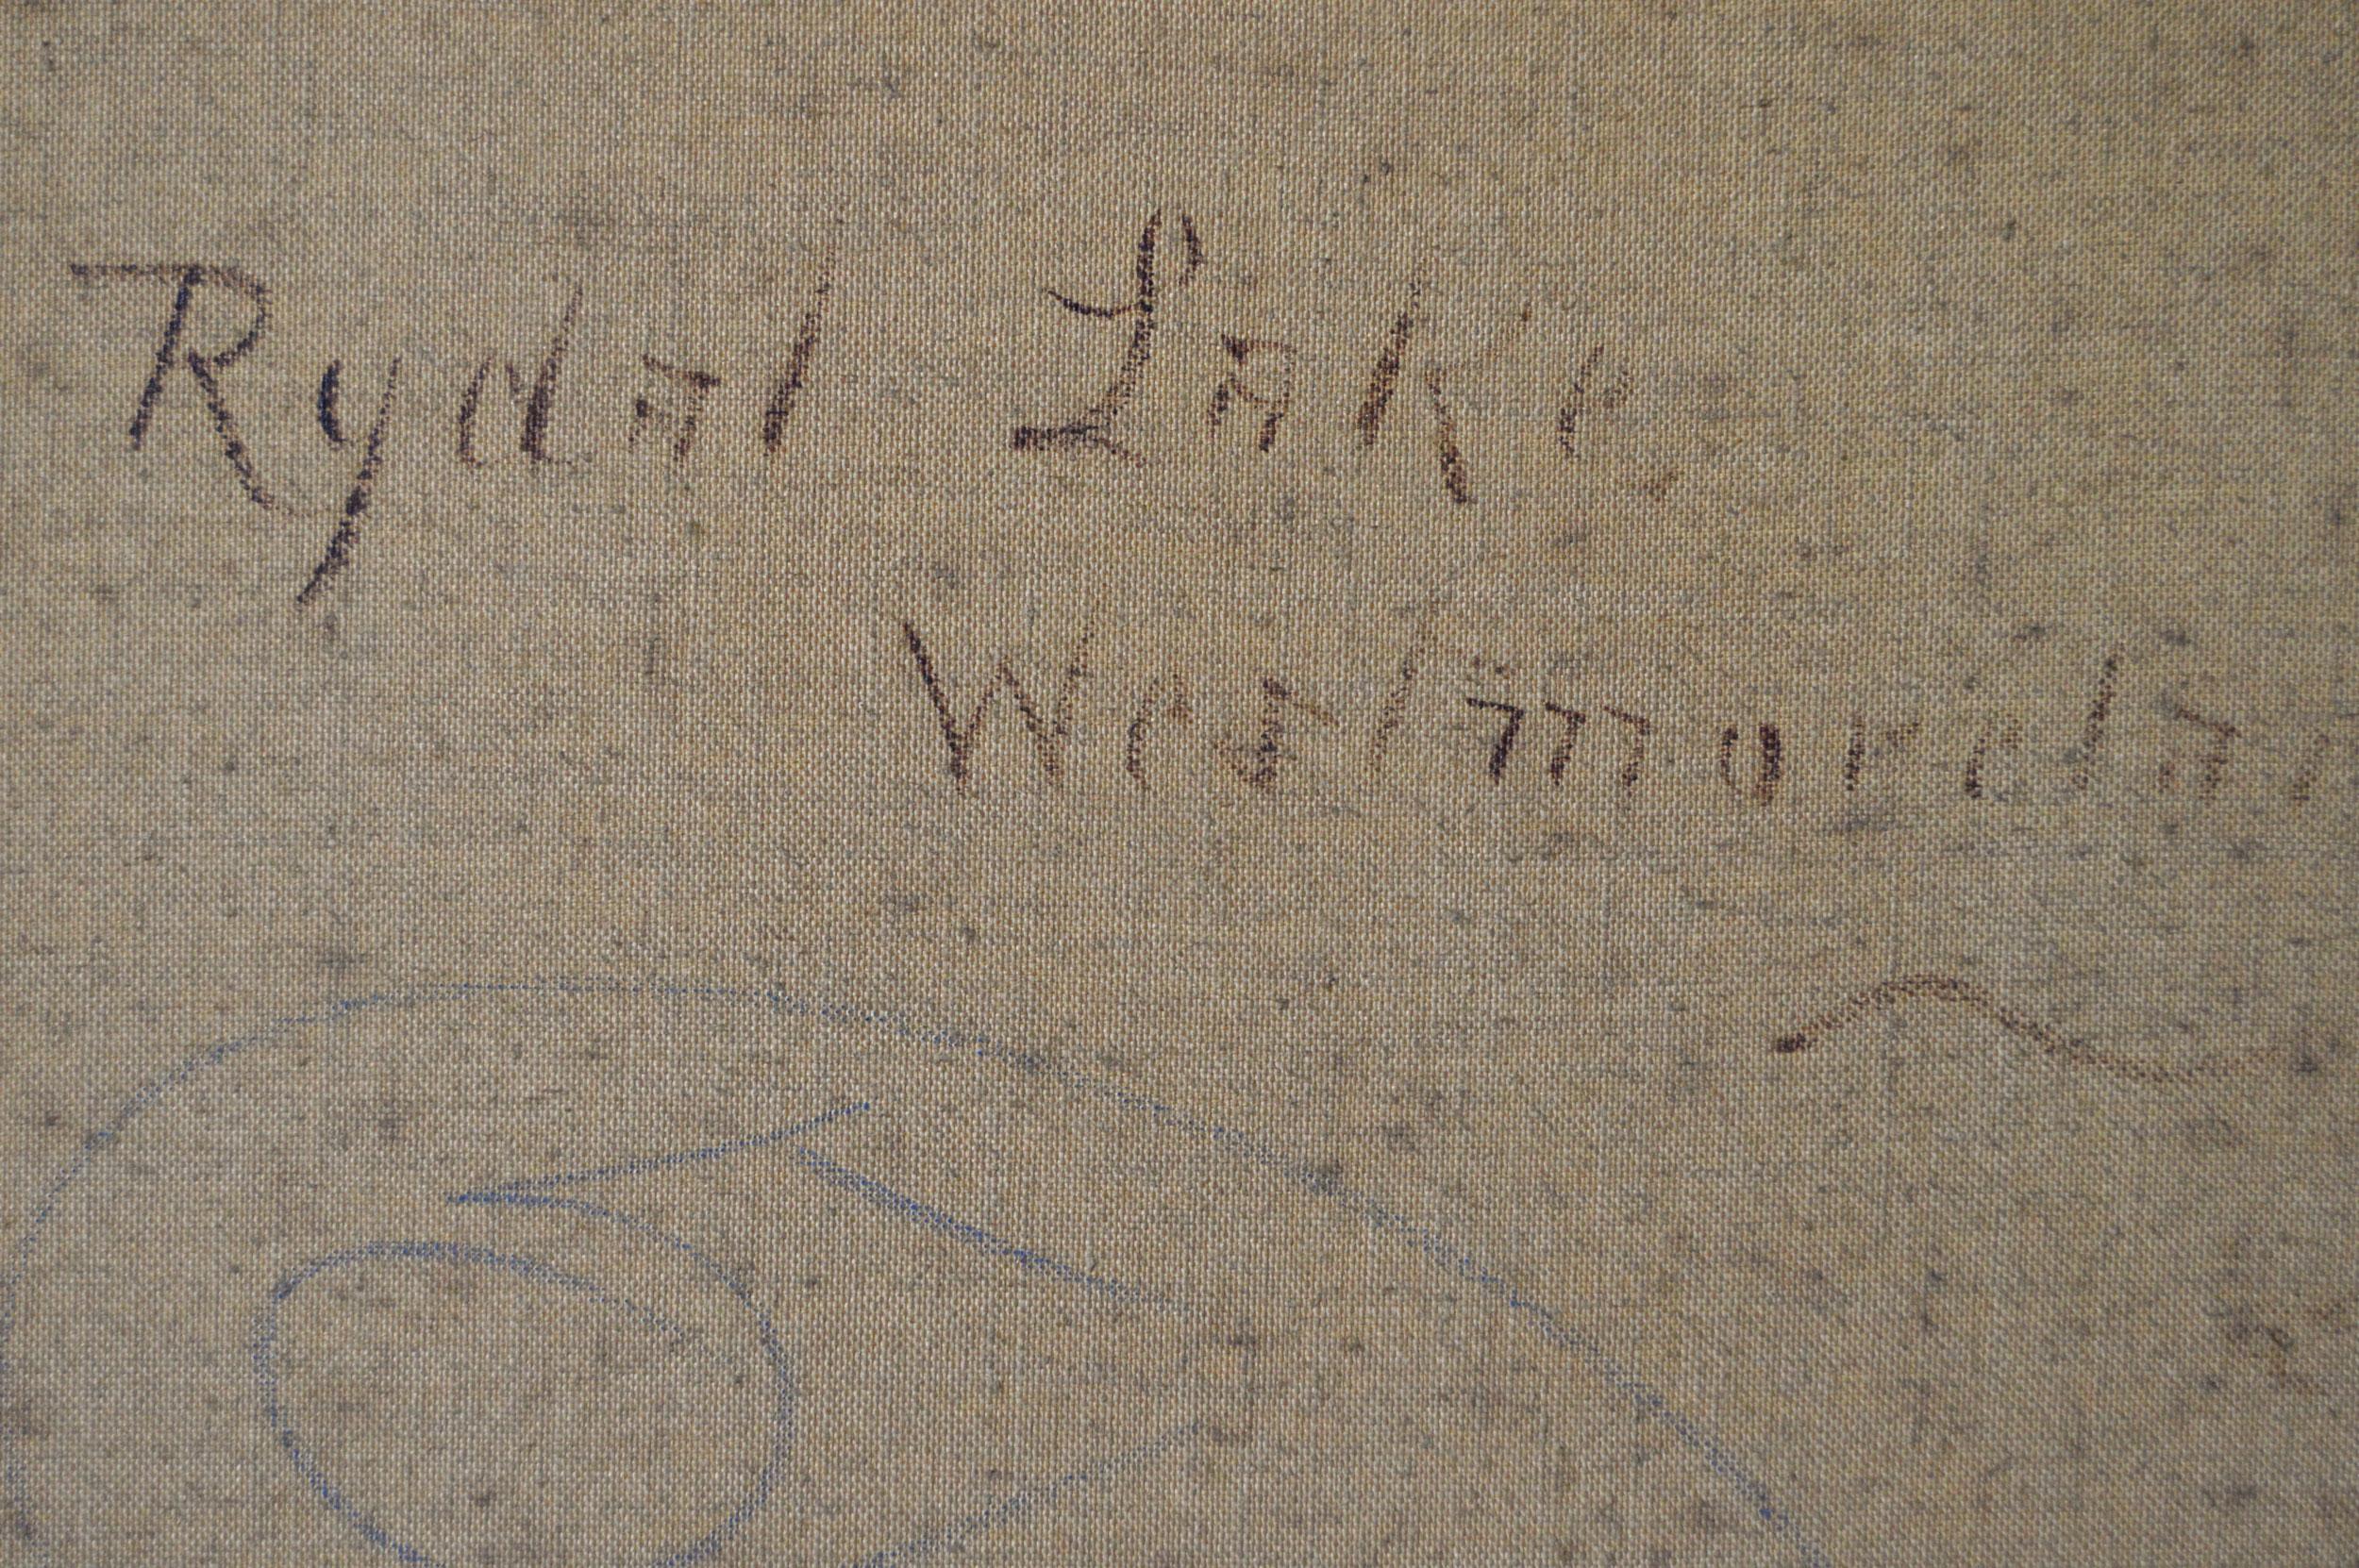 Rydal Lake
Westmorelan